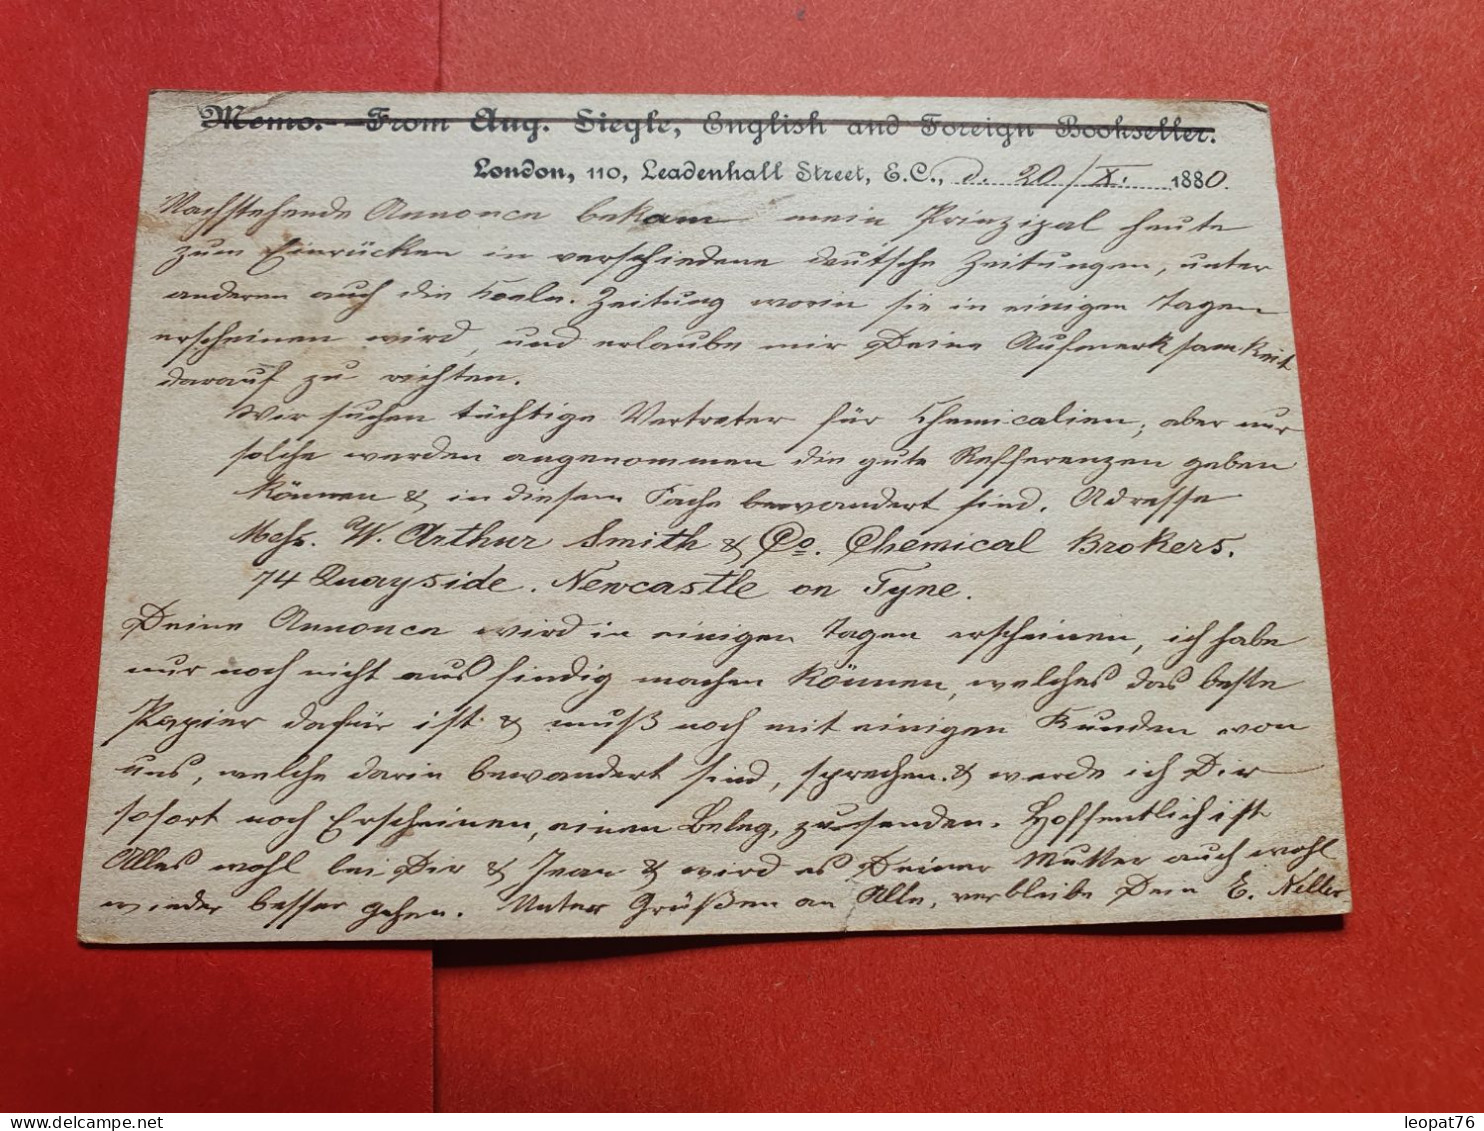 Memo.--From Aug. Siegle, English and Foreign Bookseller.
London, 110, Leadenhall Street, E.C., d. 20/XI. 1880.
Nachstehende Annonce bekam mein Prinzipal heute
zum Einrücken in verschiedene deutsche Zeitungen, unter
anderen auch die Koeln. Zeitung worin sie in einigen Tagen
erscheinen wird, und erlaube mir Deine Aufmerksamkeit
darauf zu richten.
Wir suchen tüchtige Vertreter für Chemicalien, aber nur
solche werden angenommen die gute Refferenzen geben
können & in diesem Fache bewandert sind. Adresse
Messrs. W. Arthur Smith & Co. Chemical Brokers.
74 Quayside. Newcastle on Tyne.
Deine Annonce wird in einigen Tagen erscheinen, ich habe
nur noch nicht ausfindig machen können, welches das beste
Papier dafür ist & muß noch mit einigen Kunden von
uns, welche darin bewandert sind, sprechen. & werde ich Dir
sofort nach Erscheinen, einen Beleg, zusenden. Hoffentlich ist
Alles wohl bei Dir & Jean & wird es Deiner Mutter auch wohl
wieder besser gehen. Unter Grüßen an Alle, verbleibe Dein E.
leopat76